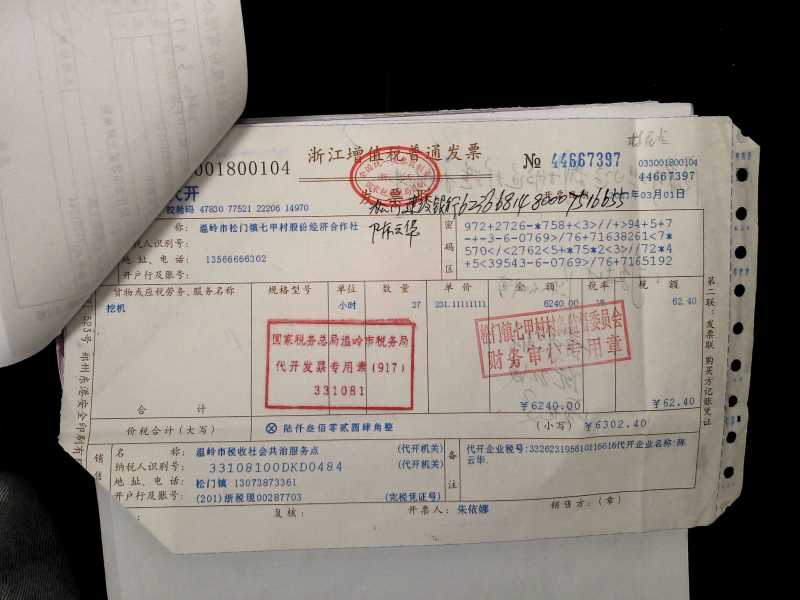 001800104
浙江增值税普通发票
№ 44667397
033001800104
44667397
代开
校验码 47830 77521 22206 14970
03月01日
名 称: 温岭市松门镇七甲村股份经济合作社
纳税人识别号:
地 址、电 话: 13566666302
开户行及账号:
陈云华
密码区
972+2726-*758+<3>//+>94+5+7
-+-3-6-0769>/76+71638261<7*
570</<2762<5+*75*2<3>//72*4
+5<39543-6-0769>/76+7165192
货物或应税劳务、服务名称 规格型号 单位 数 量 单 价 金 额 税率 税 额
挖机 小时 27 231.11111111 6240.00 62.40
国家税务总局温岭市税务局
代开发票专用章(917)
331081
松门镇七甲村村务监督委员会
财务审核专用章
合 计 ¥6240.00 ¥62.40
价税合计(大写) ⊗ 陆仟叁佰零贰圆肆角整 (小写) ¥6302.40
名 称: 温岭市税收社会共治服务点 (代开机关)
纳税人识别号: 33108100DKD0484 (代开机关)
地 址、电 话: 松门镇 13073873361
开户行及账号: (201)浙税现00287703 (完税凭证号)
备注
代开企业税号:332623195610116616代开企业名称:陈
云华
复核: 开票人: 朱依娜 销售方:(章)
第二联:发票联 购买方记账凭证